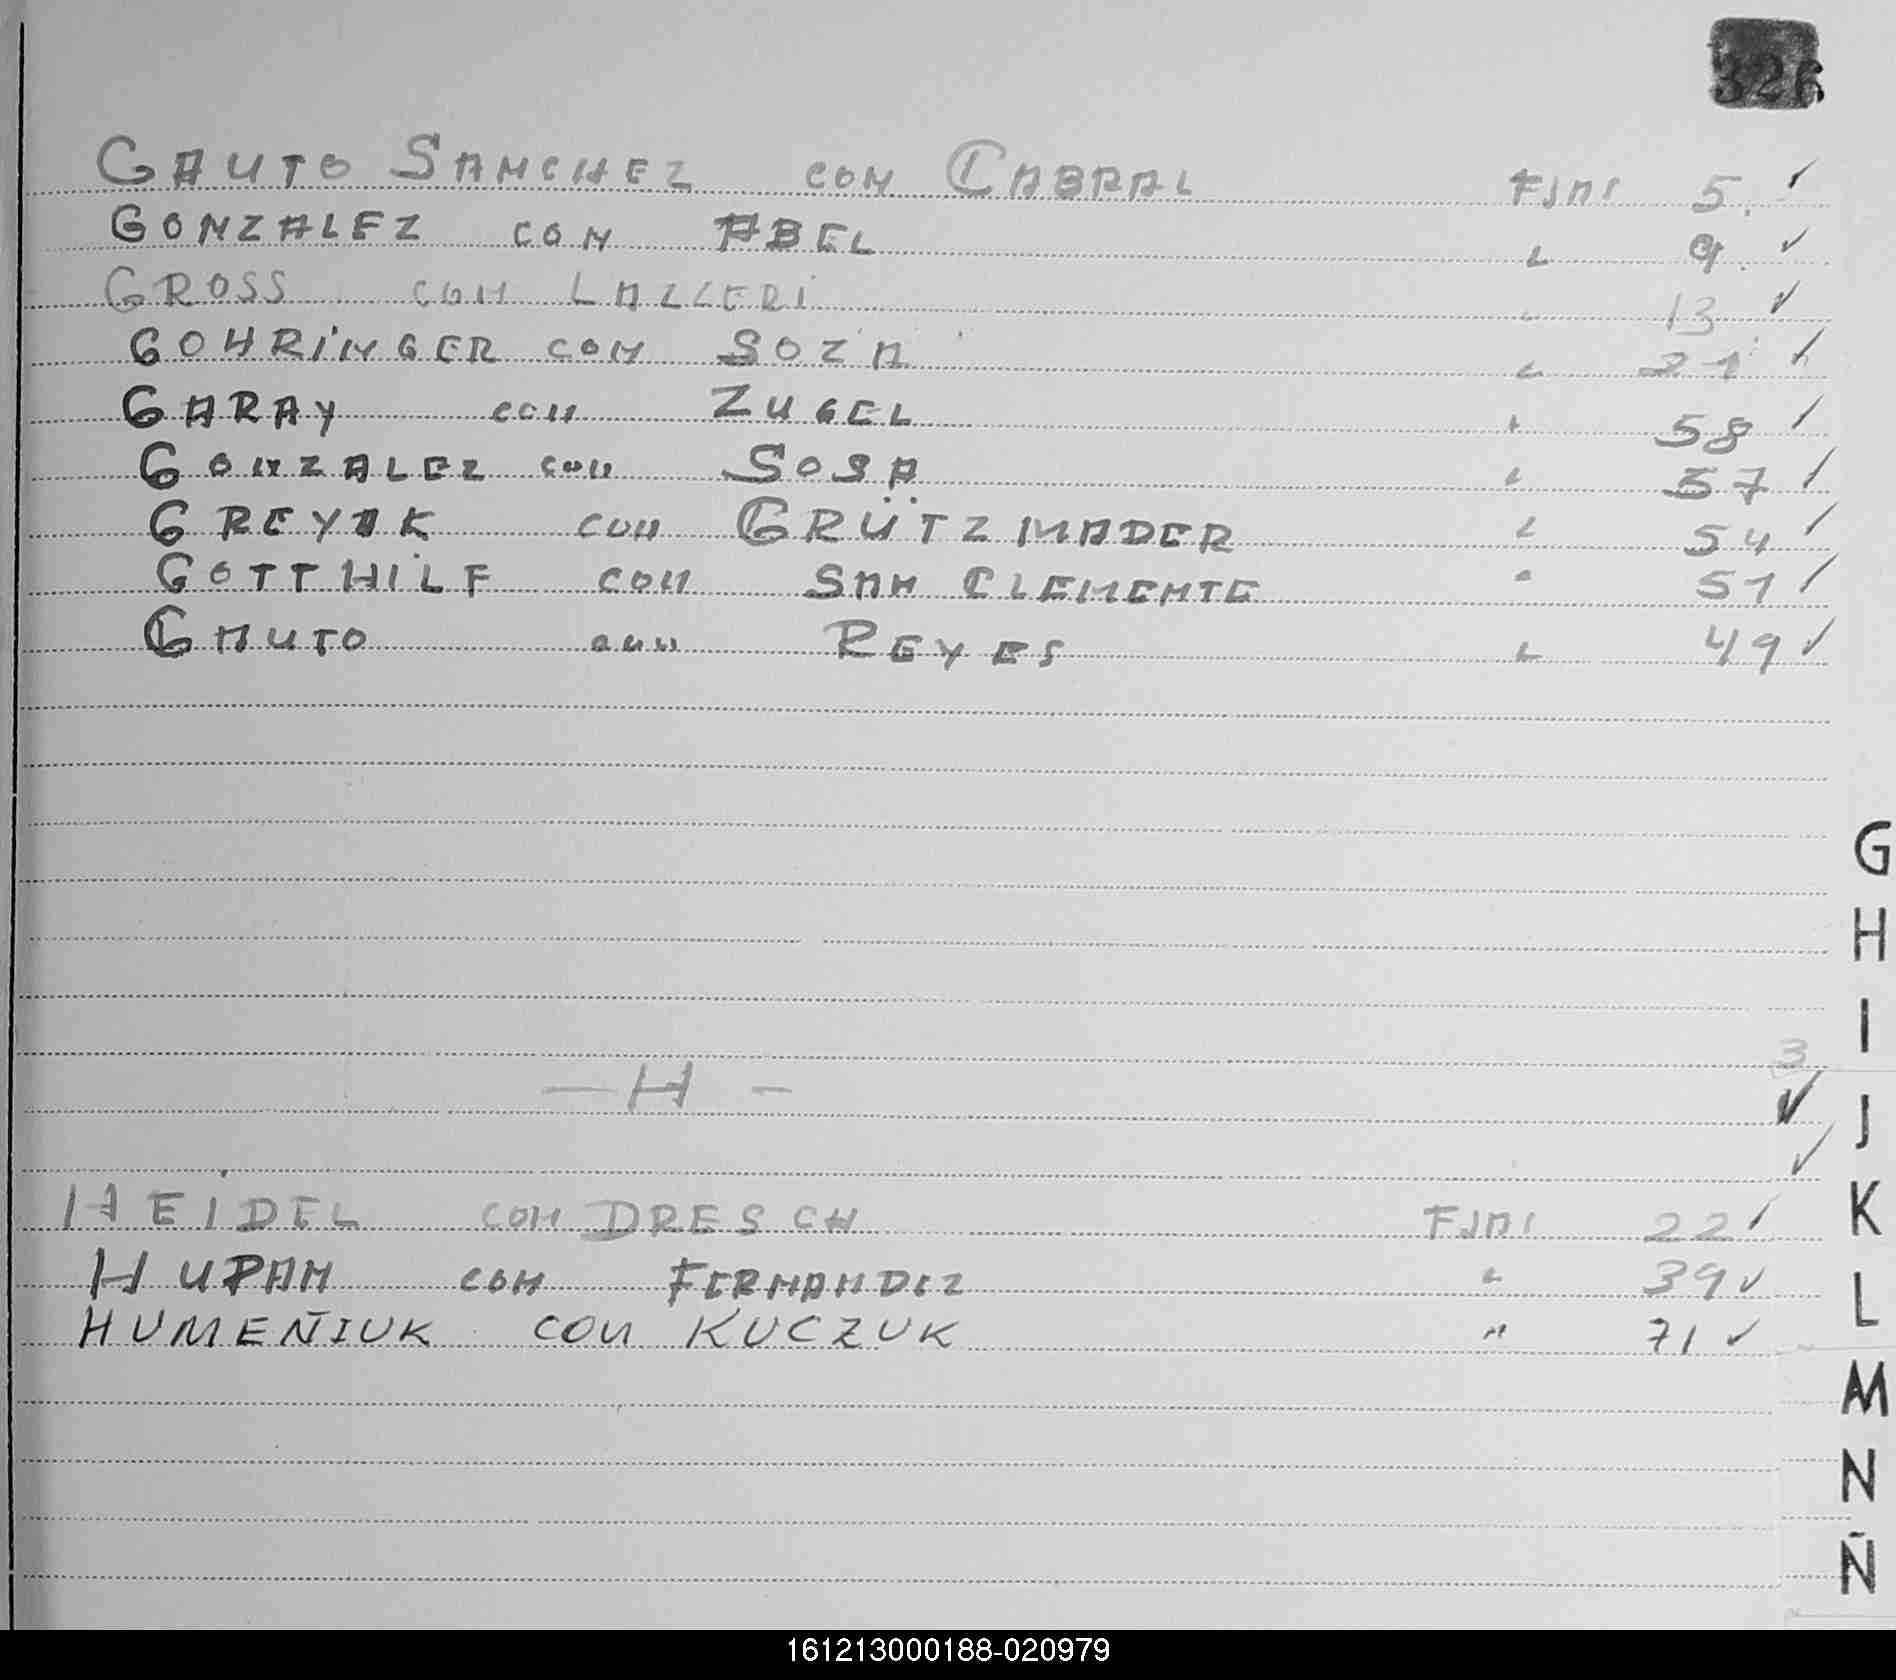 326
GAUTO SANCHEZ CON CABRAL FJAS 5. ✓
GONZALEZ CON ABEL " 9. ✓
GROSS CON LAZZERI " 13 ✓
GOHRINGER CON SOZA " 21 ✓
GARAY CON ZUGEL " 58 ✓
GONZALEZ CON SOSA " 57 ✓
GREYAK CON GRÜTZMADER " 54 ✓
GOTTHILF CON SAN CLEMENTE " 51 ✓
GAUTO CON REYES " 49 ✓
G
H
I
3
— H — ✓
J
✓
HEIDEL CON DRESCH FJAS 22 ✓
K
HUPAN CON FERNANDEZ " 39 ✓
L
HUMEÑIUK CON KUCZUK " 71 ✓
M
N
Ñ
161213000188-020979